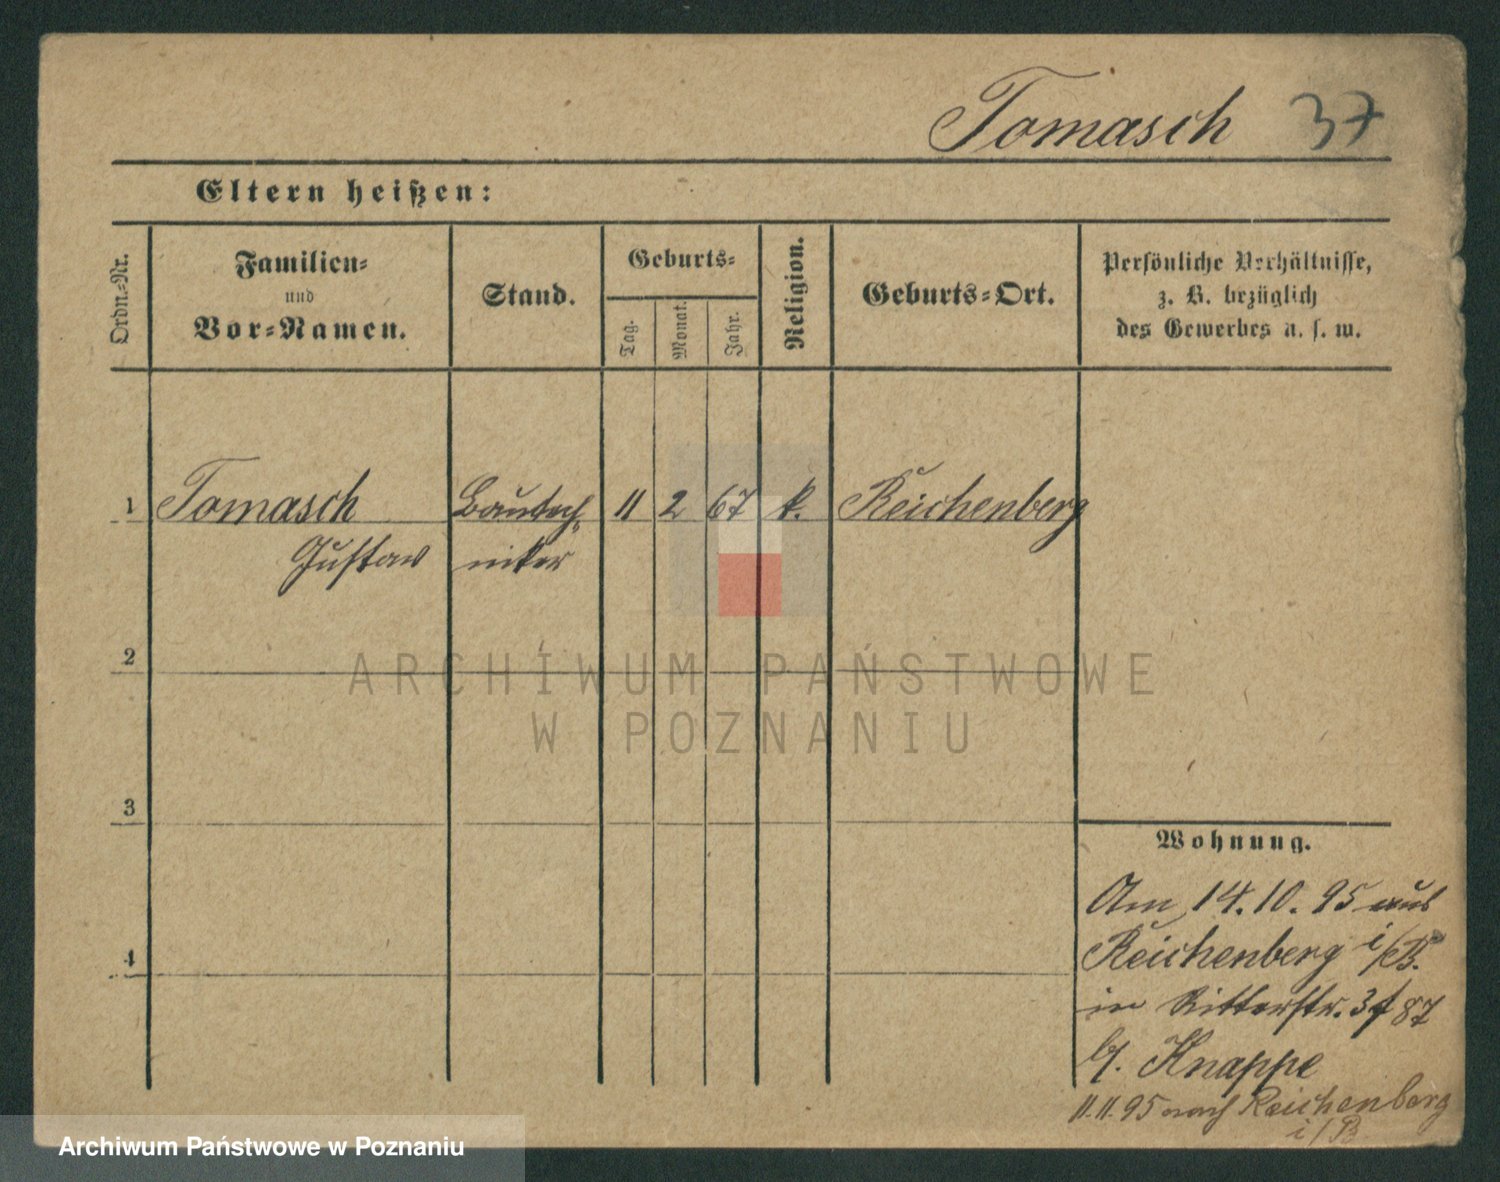 Tomasch 37
Eltern heißen:
Ordn.-Nr.
Familien-
und
Vor-Namen.
Stand.
Geburts-
Tag.
Monat.
Jahr.
Religion.
Geburts-Ort.
Persönliche Verhältnisse,
z. B. bezüglich
des Gewerbes u. s. w.
1 Tomasch Bautech- 11 2 67 k. Reichenberg
Gustav niker
2
3
4
Wohnung.
Am 14.10.95 aus
Reichenberg i/B.
in Ritterstr. 37
b/. Knappe
11.11.95 nach Reichenberg
i/B
ARCHIWUM PAŃSTWOWE
W POZNANIU
Archiwum Państwowe w Poznaniu